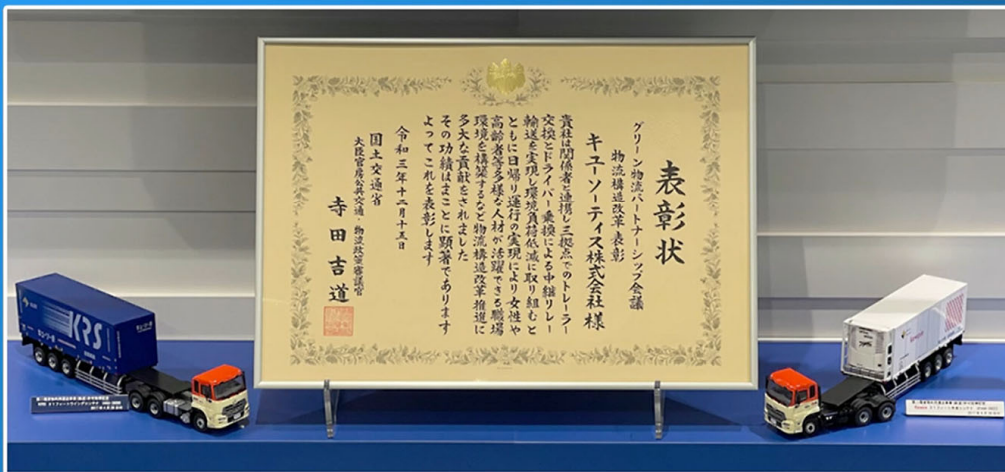 表彰状
グリーン物流パートナーシップ会議
物流構造改革表彰
キユーソーティス株式会社 様
貴社は関係者と連携し三拠点でのトレーラー
交換とドライバー乗換による中継リレー
輸送を実現し環境負荷低減に取り組むと
ともに日帰り運行の実現により女性や
高齢者等多様な人材が活躍できる職場
環境を構築するなど物流構造改革推進に
多大な貢献をされました
その功績はまことに顕著であります
よってこれを表彰します
令和三年十二月十五日
国土交通省
大臣官房公共交通・物流政策審議官
寺田吉道
KRS